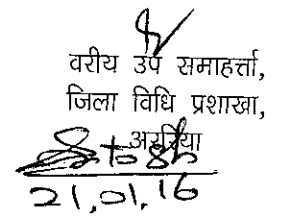 वरीय उप समाहर्त्ता,
जिला विधि प्रशाखा,
अररिया
21.01.16